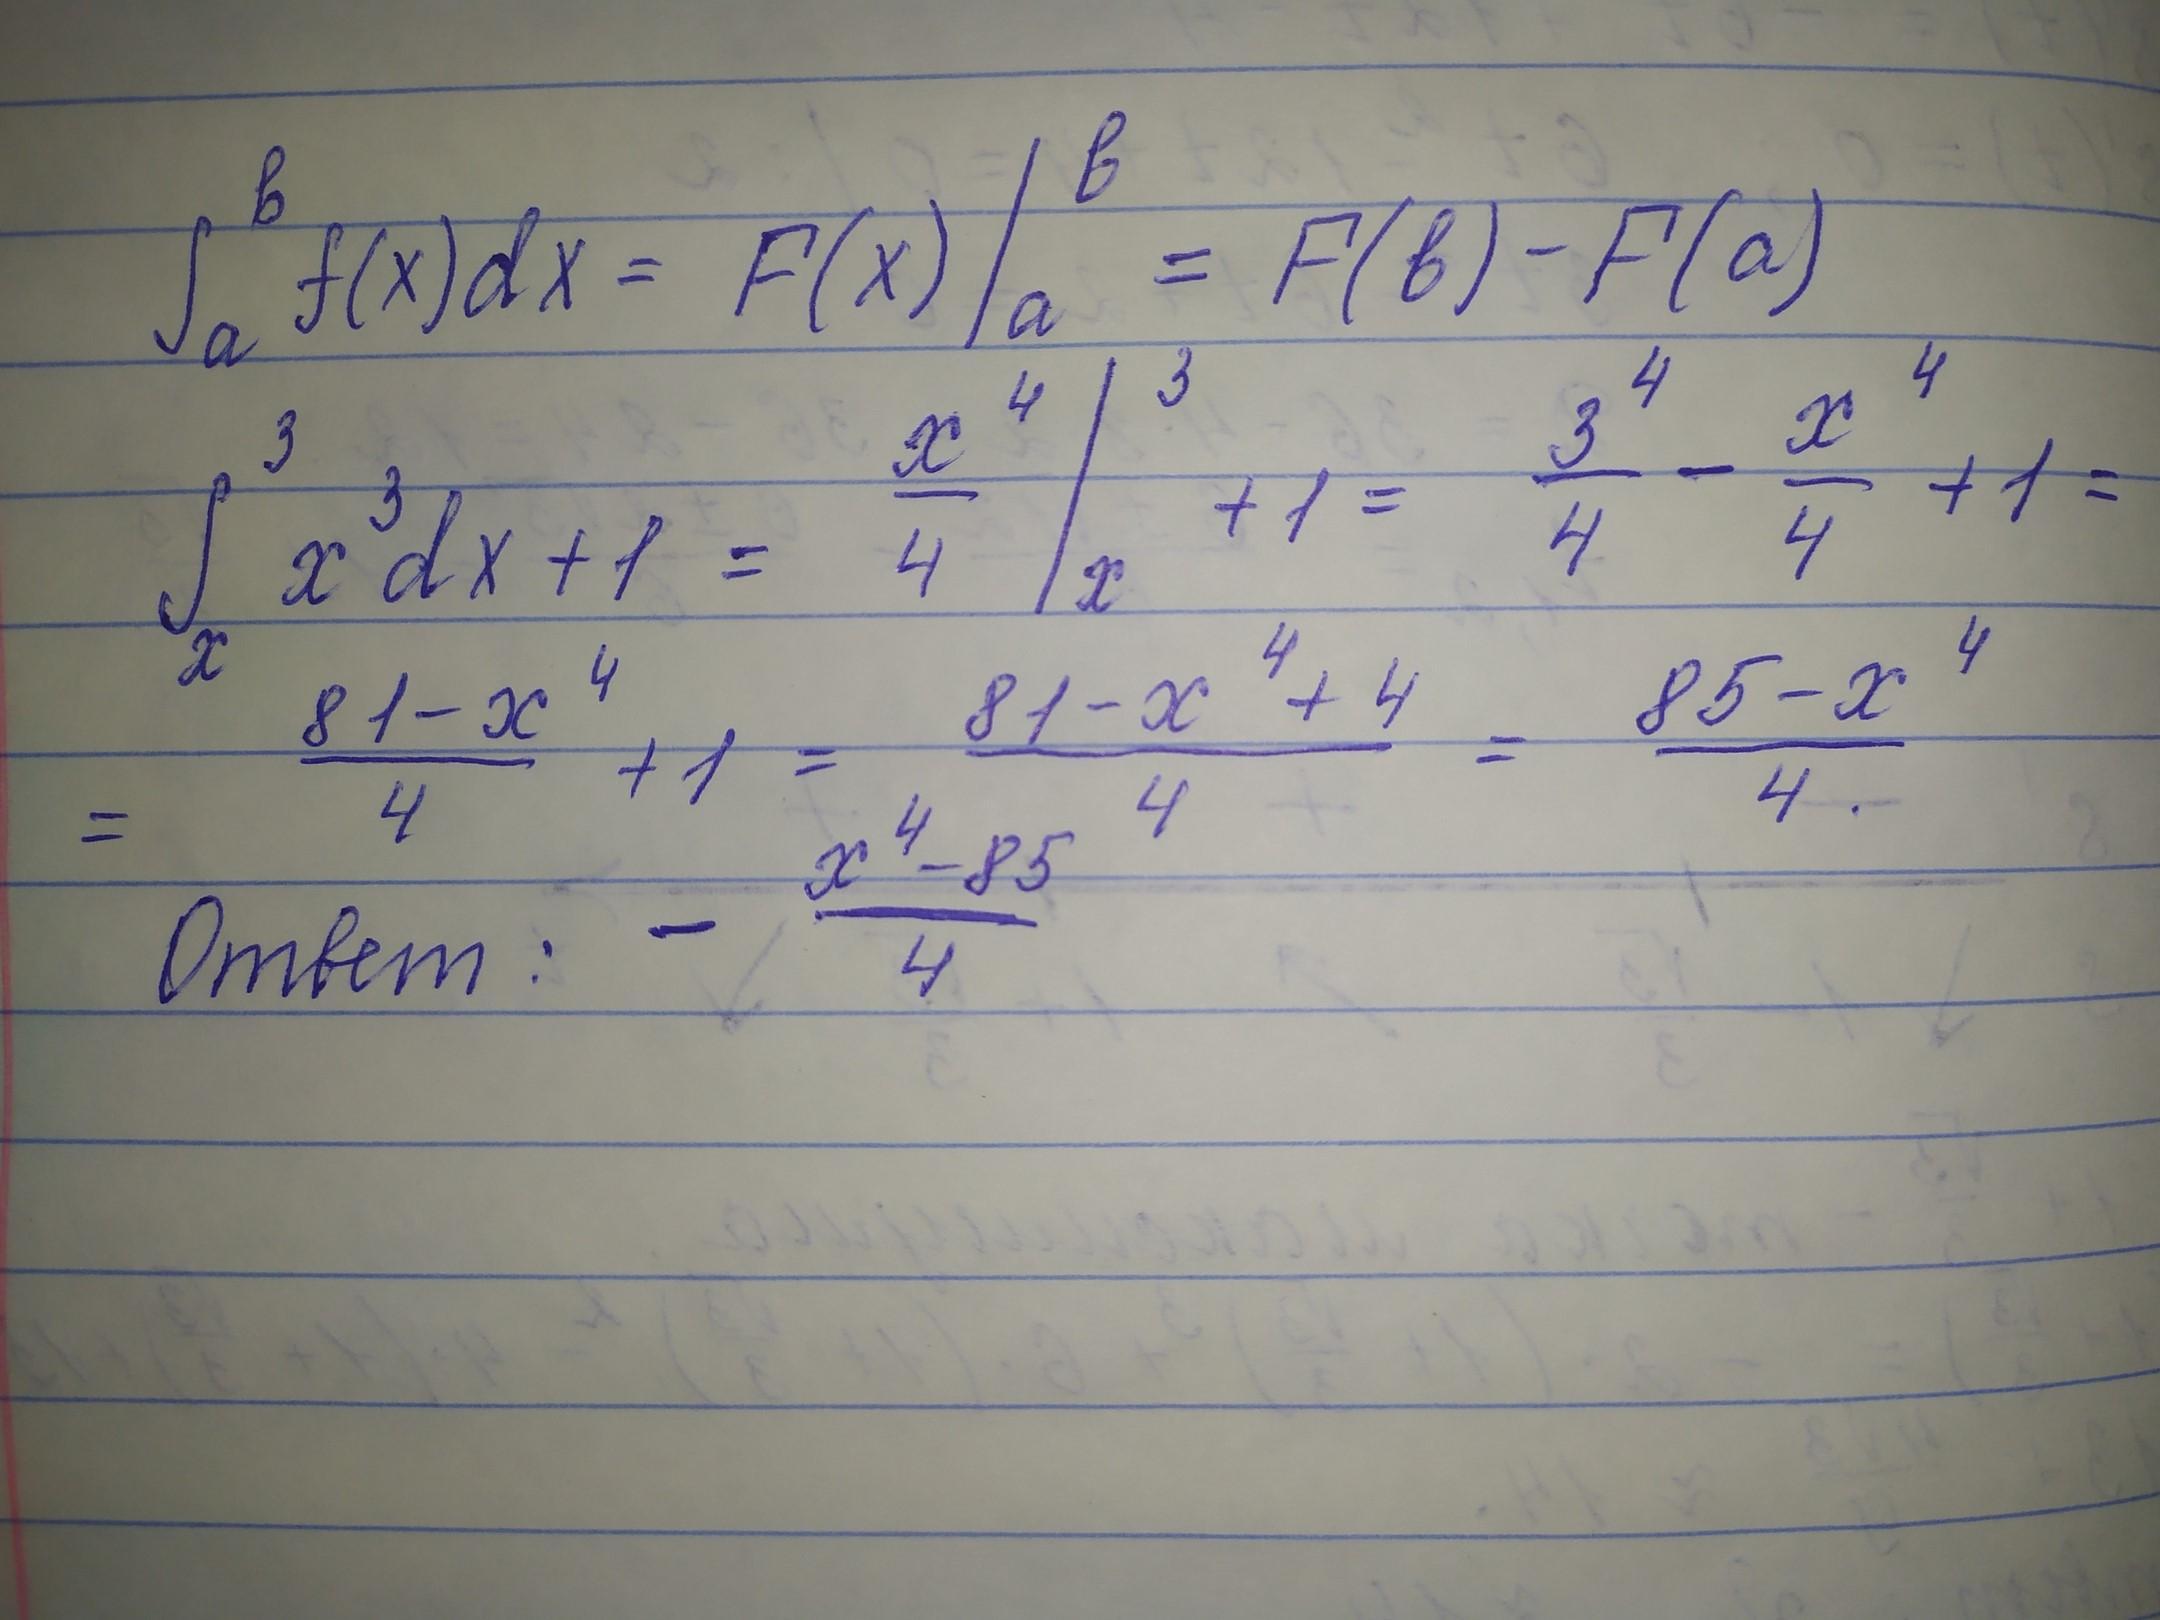 ∫ₐᵇ f(x)dx = F(x)|ₐᵇ = F(b) - F(a)
∫ₓ³ x³dx + 1 = x⁴/4 |ₓ³ + 1 = 3⁴/4 - x⁴/4 + 1 =
= (81 - x⁴)/4 + 1 = (81 - x⁴ + 4)/4 = (85 - x⁴)/4.
Ответ: - (x⁴ - 85)/4